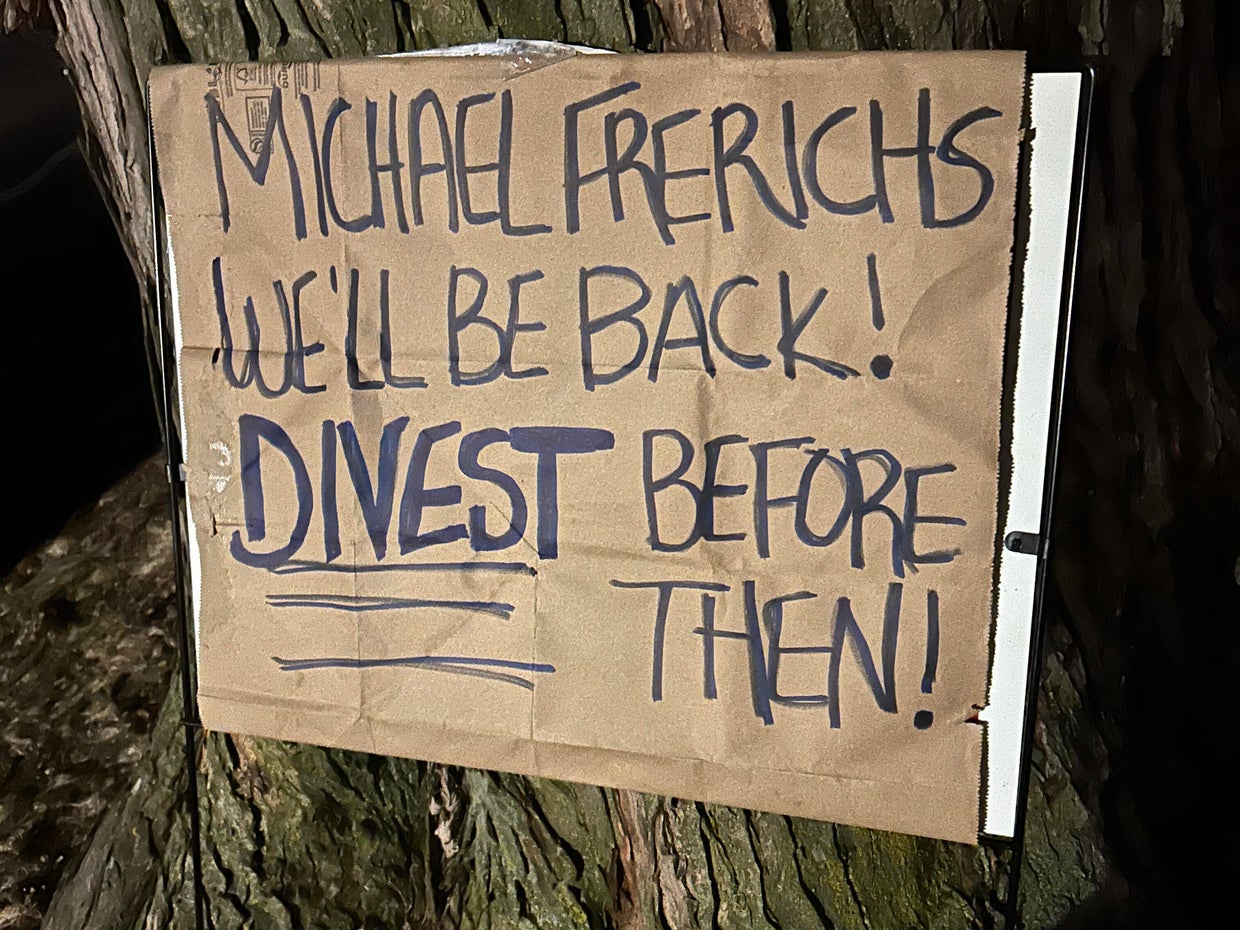 MICHAEL FRERICHS
WE'LL BE BACK!
DIVEST BEFORE
THEN!